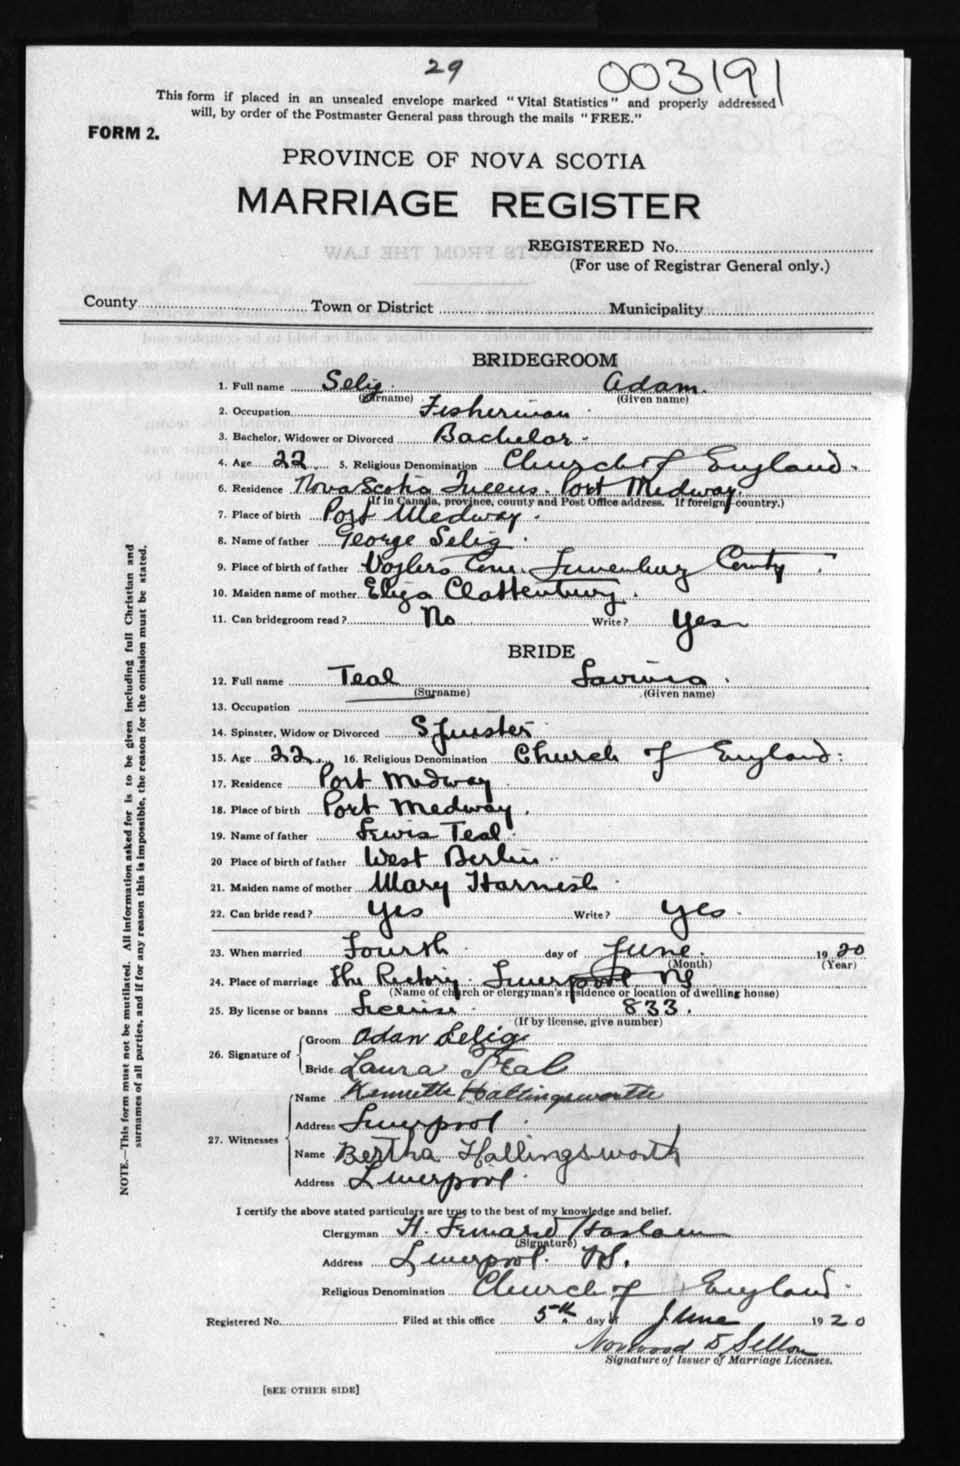 29
003191
This form if placed in an unsealed envelope marked "Vital Statistics" and properly addressed
will, by order of the Postmaster General pass through the mails "FREE."
FORM 2.
PROVINCE OF NOVA SCOTIA
MARRIAGE REGISTER
REGISTERED No.
(For use of Registrar General only.)
County Town or District Municipality
BRIDEGROOM
1. Full name Selig Adam.
(Surname) (Given name)
2. Occupation Fisherman
3. Bachelor, Widower or Divorced Bachelor
4. Age 22 5. Religious Denomination Church of England.
6. Residence Nova Scotia Queens. Port Medway.
(If in Canada, province, county and Post Office address. If foreign, country.)
7. Place of birth Port Medway.
8. Name of father George Selig
9. Place of birth of father Voglers Cove Lunenburg County
10. Maiden name of mother Eliza Clattenburg.
11. Can bridegroom read? No Write? Yes
BRIDE
12. Full name Teal Lavinia.
(Surname) (Given name)
13. Occupation
14. Spinster, Widow or Divorced Spinster
15. Age 22. 16. Religious Denomination Church of England:
17. Residence Port Medway
18. Place of birth Port Medway.
19. Name of father Lewis Teal
20 Place of birth of father West Berlin
21. Maiden name of mother Mary Harnish
22. Can bride read? Yes Write? Yes.
23. When married Fourth day of June. 1920
(Month) (Year)
24. Place of marriage The Rectory Liverpool NS
(Name of church or clergyman's residence or location of dwelling house)
25. By license or banns License 833.
(If by license, give number)
26. Signature of
Groom Adam Selig
Bride Laura Teal
27. Witnesses
Name Kenneth Hallingsworth
Address Liverpool
Name Bertha Hallingsworth
Address Liverpool
I certify the above stated particulars are true to the best of my knowledge and belief.
Clergyman H. Haslam
(Signature)
Address Liverpool. NS.
Religious Denomination Church of England
Registered No. Filed at this office 5th. day of June 1920
Norwood
Signature of Issuer of Marriage Licenses.
[SEE OTHER SIDE]
NOTE.—This form must not be mutilated. All information asked for is to be given including full Christian and
surnames of all parties, and if for any reason this is impossible, the reason for the omission must be stated.